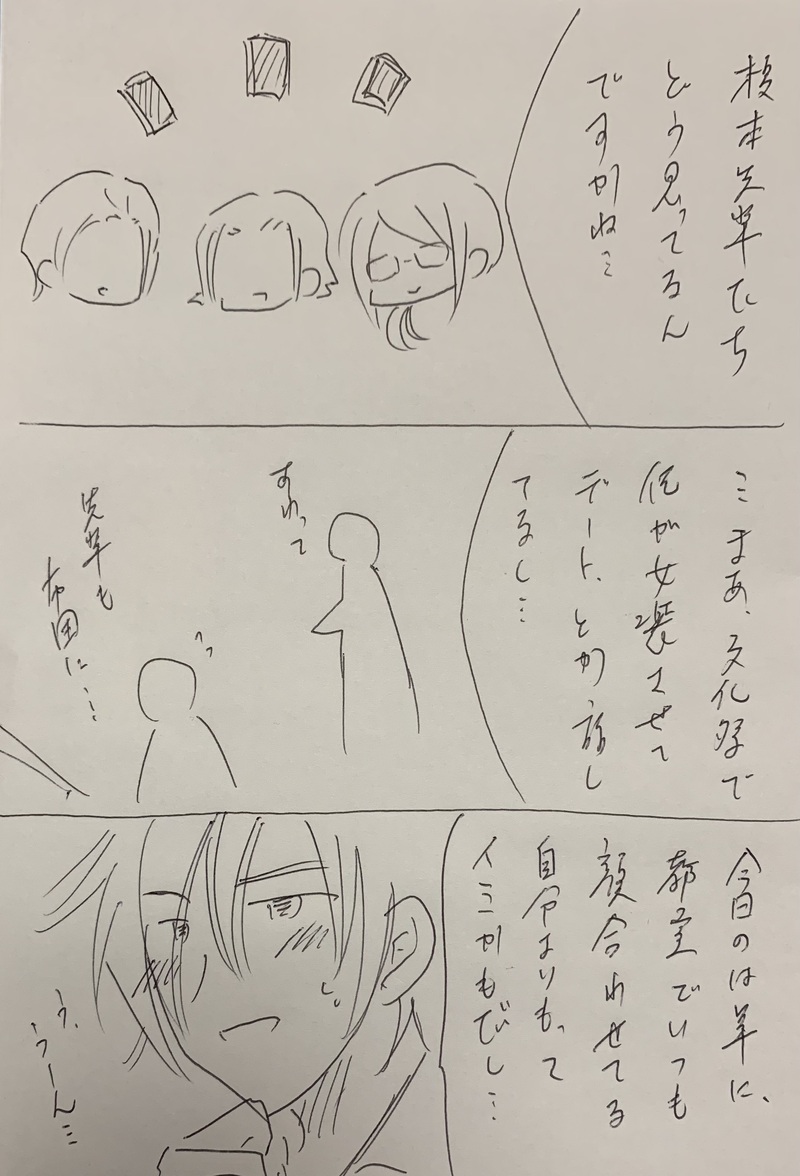 榎本先輩たち
どう思ってるん
ですかね…
…まあ、文化祭で
俺が女装させて
デート、とか話し
てるし…
すわって
先輩も
布団に…
今日のは単に、
教室でいつも
顔合わせてる
自分よりもって
イミかもだし…
う、
うーん…